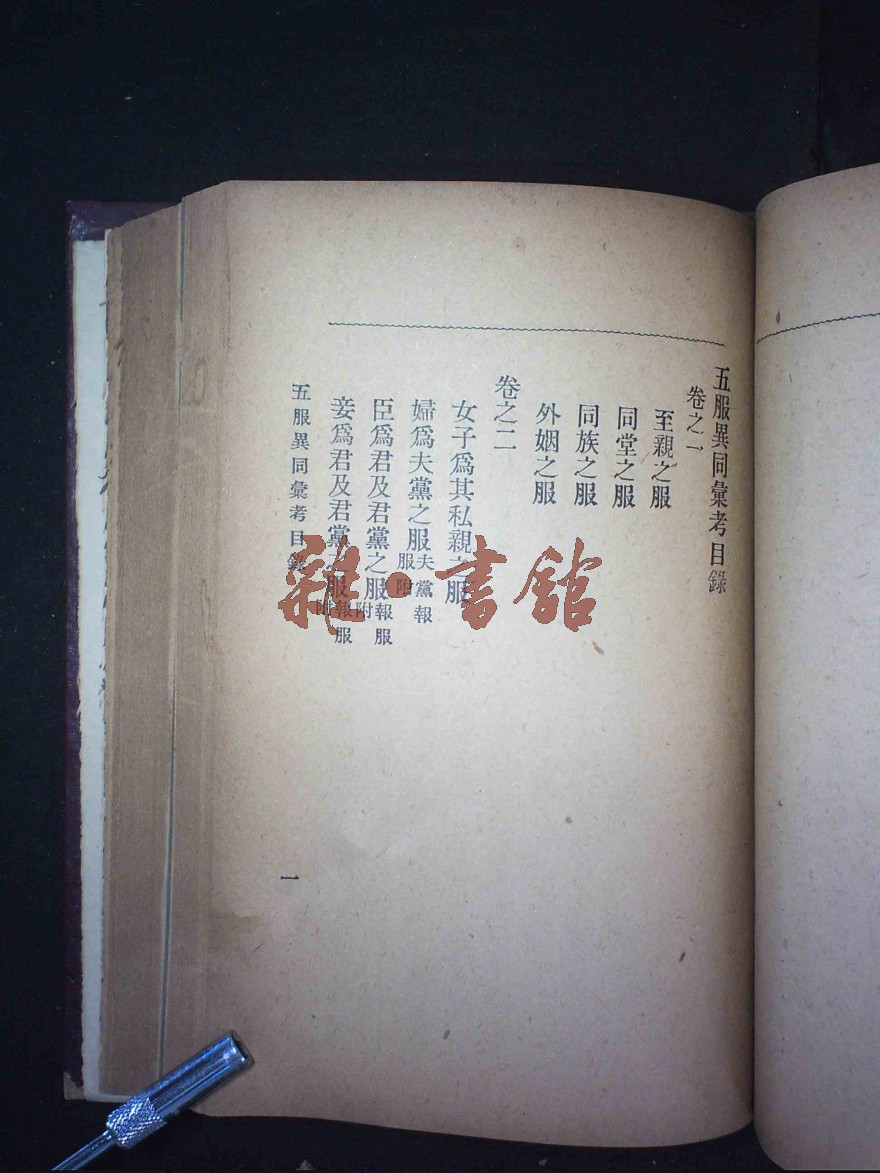 五服異同彙考目錄
卷之一
至親之服
同堂之服
同族之服
外姻之服
卷之二
女子爲其私親之服
婦爲夫黨之服夫黨報服附
臣爲君及君黨之服報服附
妾爲君及君黨之服報服附
五服異同彙考目錄
一
雜·書館